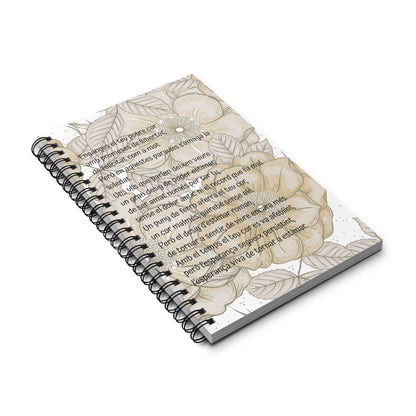 Enganyes el teu pobre cor
amb promeses de llibertat,
felicitat, com a mot.
Però en aquestes paraules s'amaga la
Uns ulls que parlen deixen veure
un gran desig de poder estimar
de ser amat només per tu,
sense el dolor en el record que fa mal.
Un punyal de dolor aferra el teu cor,
un cor malmès, gairebé sense alè.
Però el desig d'estimar roman,
de tornar a sentir, de viure encara més.
Amb el temps el teu cor es va afeblint,
però l'esperança segueix persistint,
l'esperança viva de tornar a estimar.